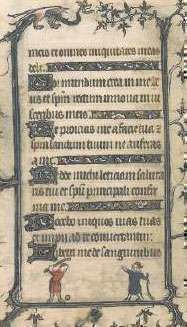 meis et omnes iniquitates meas
dele.
Cor mundum crea in me de
us et spm rectum innoua in ui
sceribus meis
Ne proicias me a facie tua z
spm sanctum tuum ne auferas
a me.
Redde michi leticiam saluta
ris tui et spu principali confir
ma me.
Docebo iniquos uias tuas
et impii ad te conuertentur.
Libera me de sanguinibus